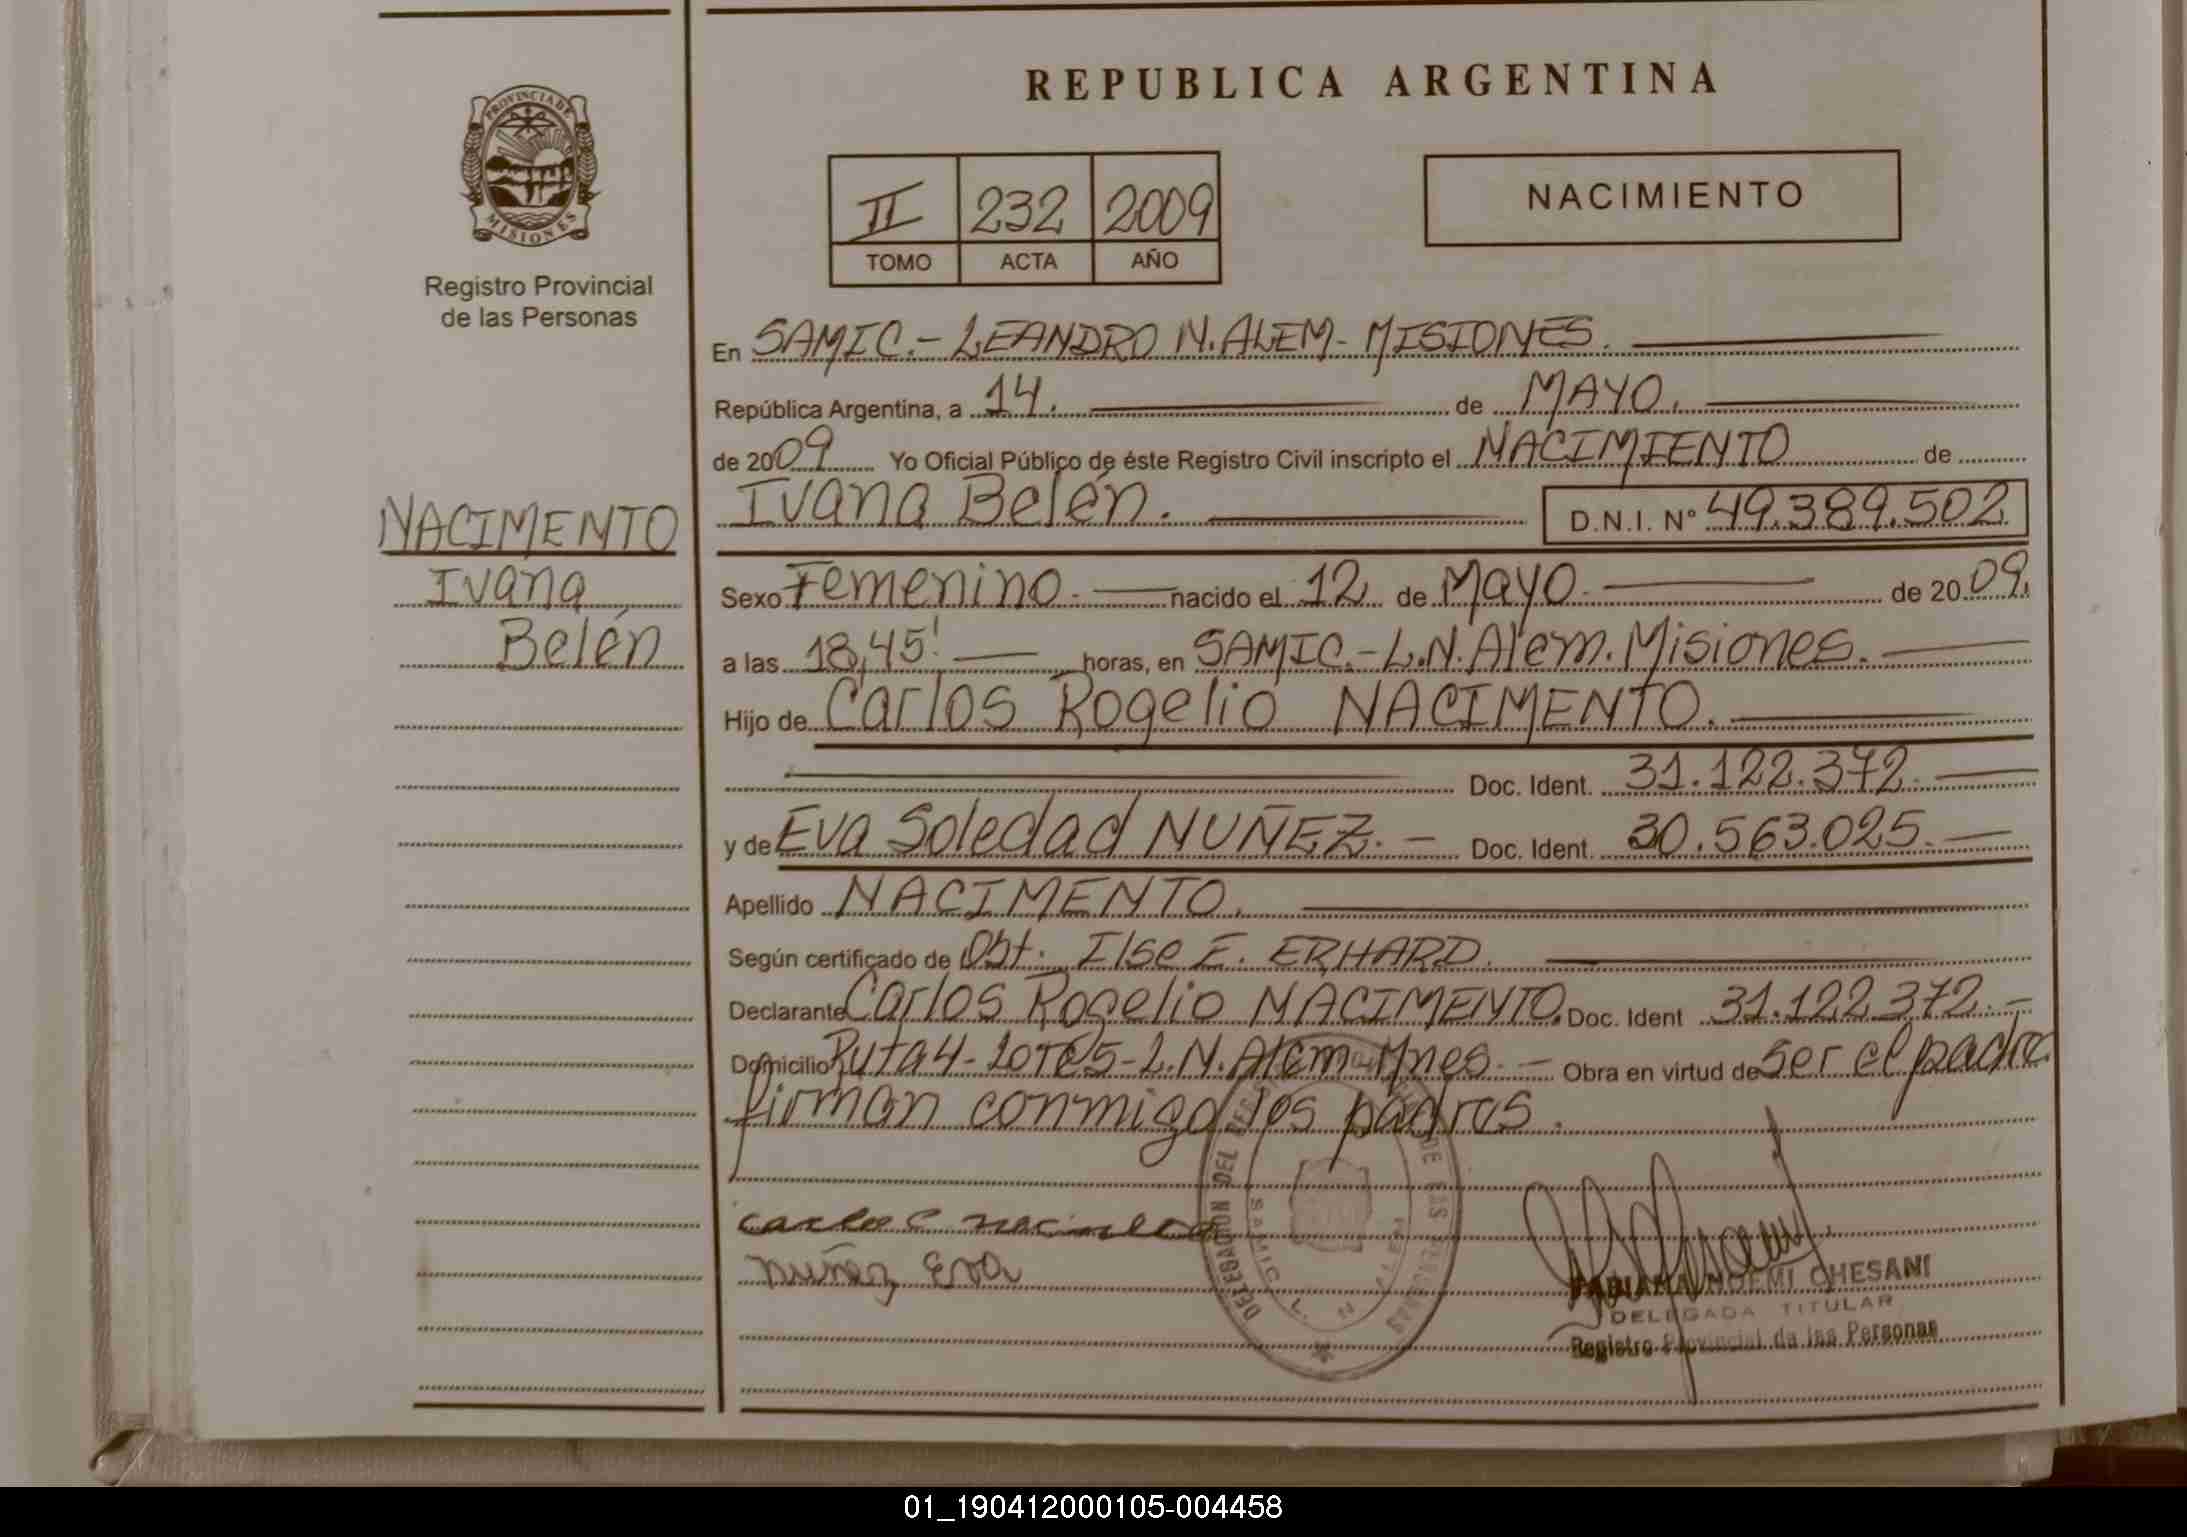 REPUBLICA ARGENTINA
PROVINCIA DE
MISIONES
Registro Provincial
de las Personas
II 232 2009
TOMO ACTA AÑO
NACIMIENTO
En SAMIC.- LEANDRO N. ALEM - MISIONES.
República Argentina, a 14. de MAYO.
de 2009 Yo Oficial Público de éste Registro Civil inscripto el NACIMIENTO de
Ivana Belén. D.N.I. Nº 49.389.502
NACIMENTO
Ivana
Belén
Sexo Femenino. nacido el 12 de Mayo. de 2009.
a las 18,45' horas, en SAMIC.- L.N. Alem. Misiones.
Hijo de Carlos Rogelio NACIMENTO.
Doc. Ident. 31.122.372.
y de Eva Soledad NUÑEZ. - Doc. Ident. 30.563.025.
Apellido NACIMENTO.
Según certificado de Obst. Ilse E. ERHARD.
Declarante Carlos Rogelio NACIMENTO. Doc. Ident 31.122.372.-
Domicilio Ruta 4- Lote 5- L.N. Alem Mnes. - Obra en virtud de ser el padre
firman conmigo los padres.
Nuñez Eva
DELEGACION DEL
DE LAS PERSONAS
SAMIC L. N. ALEM
FABIANA NOEMI CHESANI
DELEGADA TITULAR
Registro Provincial de las Personas
01_190412000105-004458